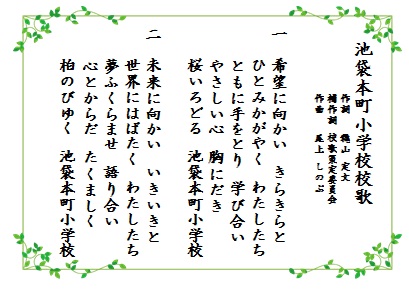 池袋本町小学校校歌
作詞 穐山 定文
補作詞 校歌策定委員会
作曲 尾上 しのぶ
一 希望に向かい きらきらと
ひとみかがやく わたしたち
ともに手をとり 学び合い
やさしい心 胸にだき
桜いろどる 池袋本町小学校
二 未来に向かい いきいきと
世界にはばたく わたしたち
夢ふくらませ 語り合い
心とからだ たくましく
柏のびゆく 池袋本町小学校